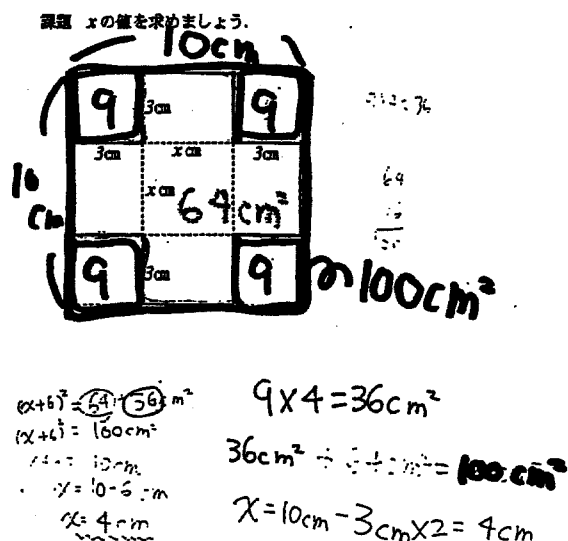 課題 xの値を求めましょう.
10cm
9 3cm 9
3cm xcm 3cm
10
cm
xcm
64cm²
9 3cm 9
100cm²
64
(x+6)²=64+36cm²
(x+6)²=100cm²
10cm
x=10-6cm
x=4cm
9×4=36cm²
36cm² = 100cm²
x=10cm-3cm×2=4cm